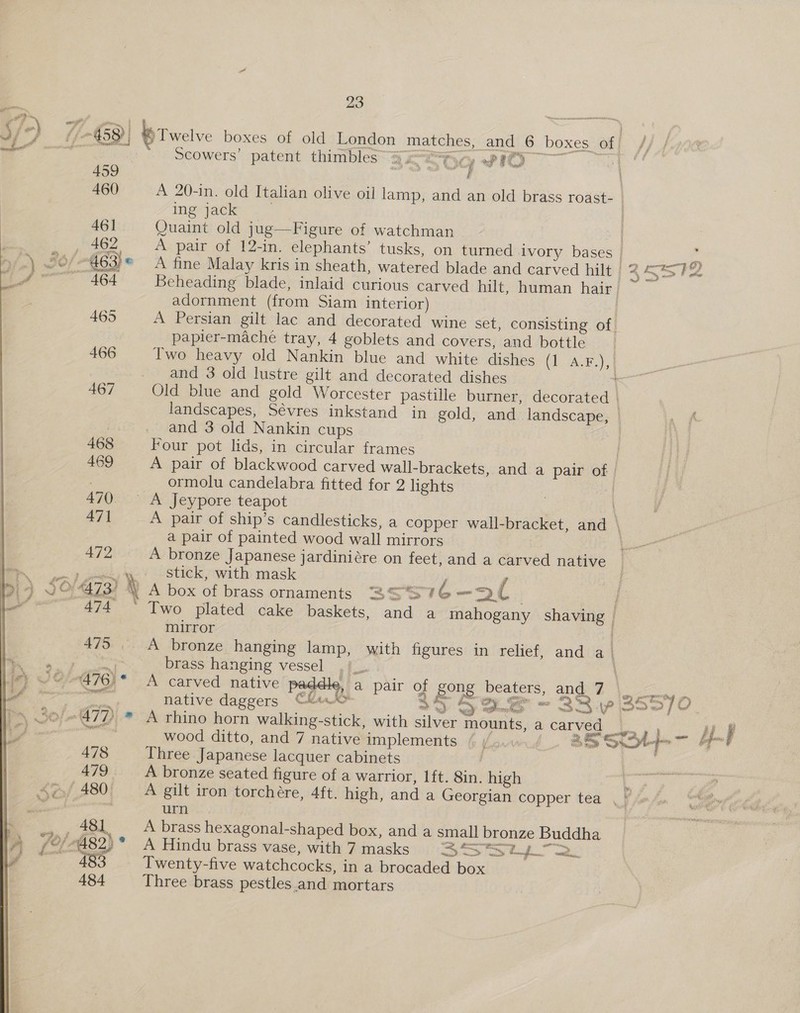 23
5/-) 458) Twelve boxes of old London matches, and 6 boxes of
Scowers' patent thimbles
459
460 A 20-in. old Italian olive oil lamp, and an old brass roast-
ing jack
461 Quaint old jug—Figure of watchman
462 A pair of 12-in. elephants' tusks, on turned ivory bases
30/- 463) * A fine Malay kris in sheath, watered blade and carved hilt 35512
464 Beheading blade, inlaid curious carved hilt, human hair
adornment (from Siam interior)
465 A Persian gilt lac and decorated wine set, consisting of
papier-maché tray, 4 goblets and covers, and bottle
466 Two heavy old Nankin blue and white dishes (1 A.F.),
and 3 old lustre gilt and decorated dishes
467 Old blue and gold Worcester pastille burner, decorated
landscapes, Sévres inkstand in gold, and landscape,
and 3 old Nankin cups
468 Four pot lids, in circular frames
469 A pair of blackwood carved wall-brackets, and a pair of
ormolu candelabra fitted for 2 lights
470 A Jeypore teapot
471 A pair of ship's candlesticks, a copper wall-bracket, and
a pair of painted wood wall mirrors
472 A bronze Japanese jardiniére on feet, and a carved native
stick, with mask
473) A box of brass ornaments 35516-21
474 Two plated cake baskets, and a mahogany shaving
mirror
475 A bronze hanging lamp, with figures in relief, and a
brass hanging vessel
476) * A carved native paddle, a pair of gong beaters, and 7
native daggers 35510
30/- 477) * A rhino horn walking-stick, with silver mounts, a carved
wood ditto, and 7 native implements
478 Three Japanese lacquer cabinets
479 A bronze seated figure of a warrior, 1ft. 8in. high
480 A gilt iron torchére, 4ft. high, and a Georgian copper tea
urn
481 A brass hexagonal-shaped box, and a small bronze Buddha
10/- 482) * A Hindu brass vase, with 7 masks
483 Twenty-five watchcocks, in a brocaded box
484 Three brass pestles and mortars